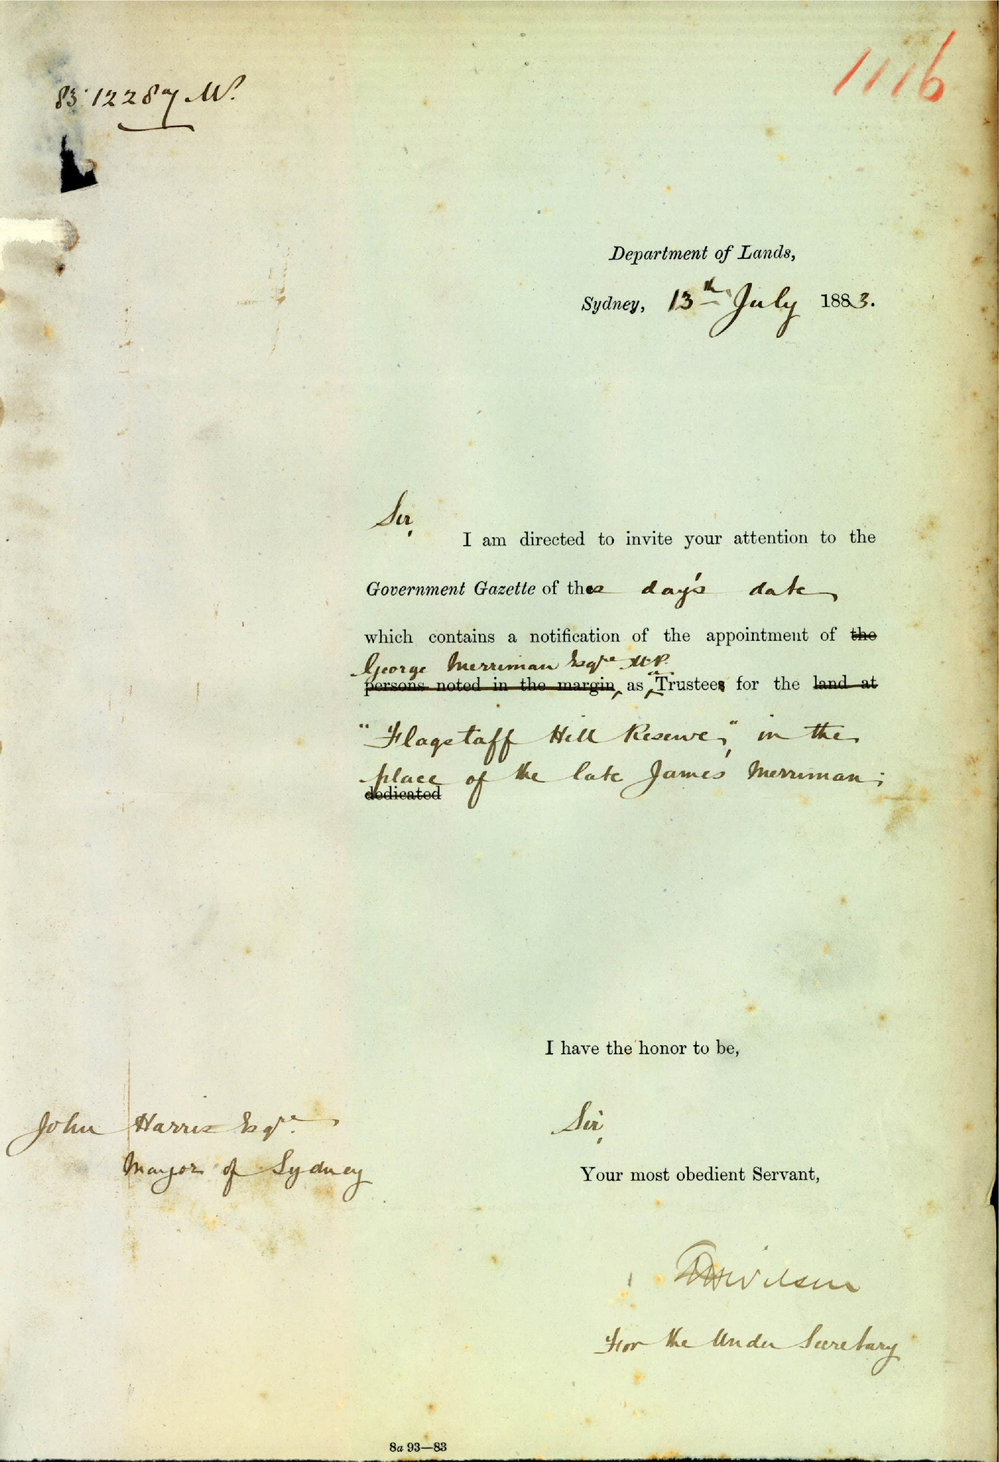 83.12287 M.
1116
Department of Lands,
Sydney, 13th July 1883.
Sir,
I am directed to invite your attention to the
Government Gazette of this day's date,
which contains a notification of the appointment of the
George Merriman Esqre M.P.
persons noted in the margin, as a Trustees for the land at
"Flagstaff Hill Reserve," in the
place of the late James Merriman;
dedicated
I have the honor to be,
Sir,
John Harris Esqre.
Mayor of Sydney
Your most obedient Servant,
Wilson
For the Under Secretary
8a 93—83